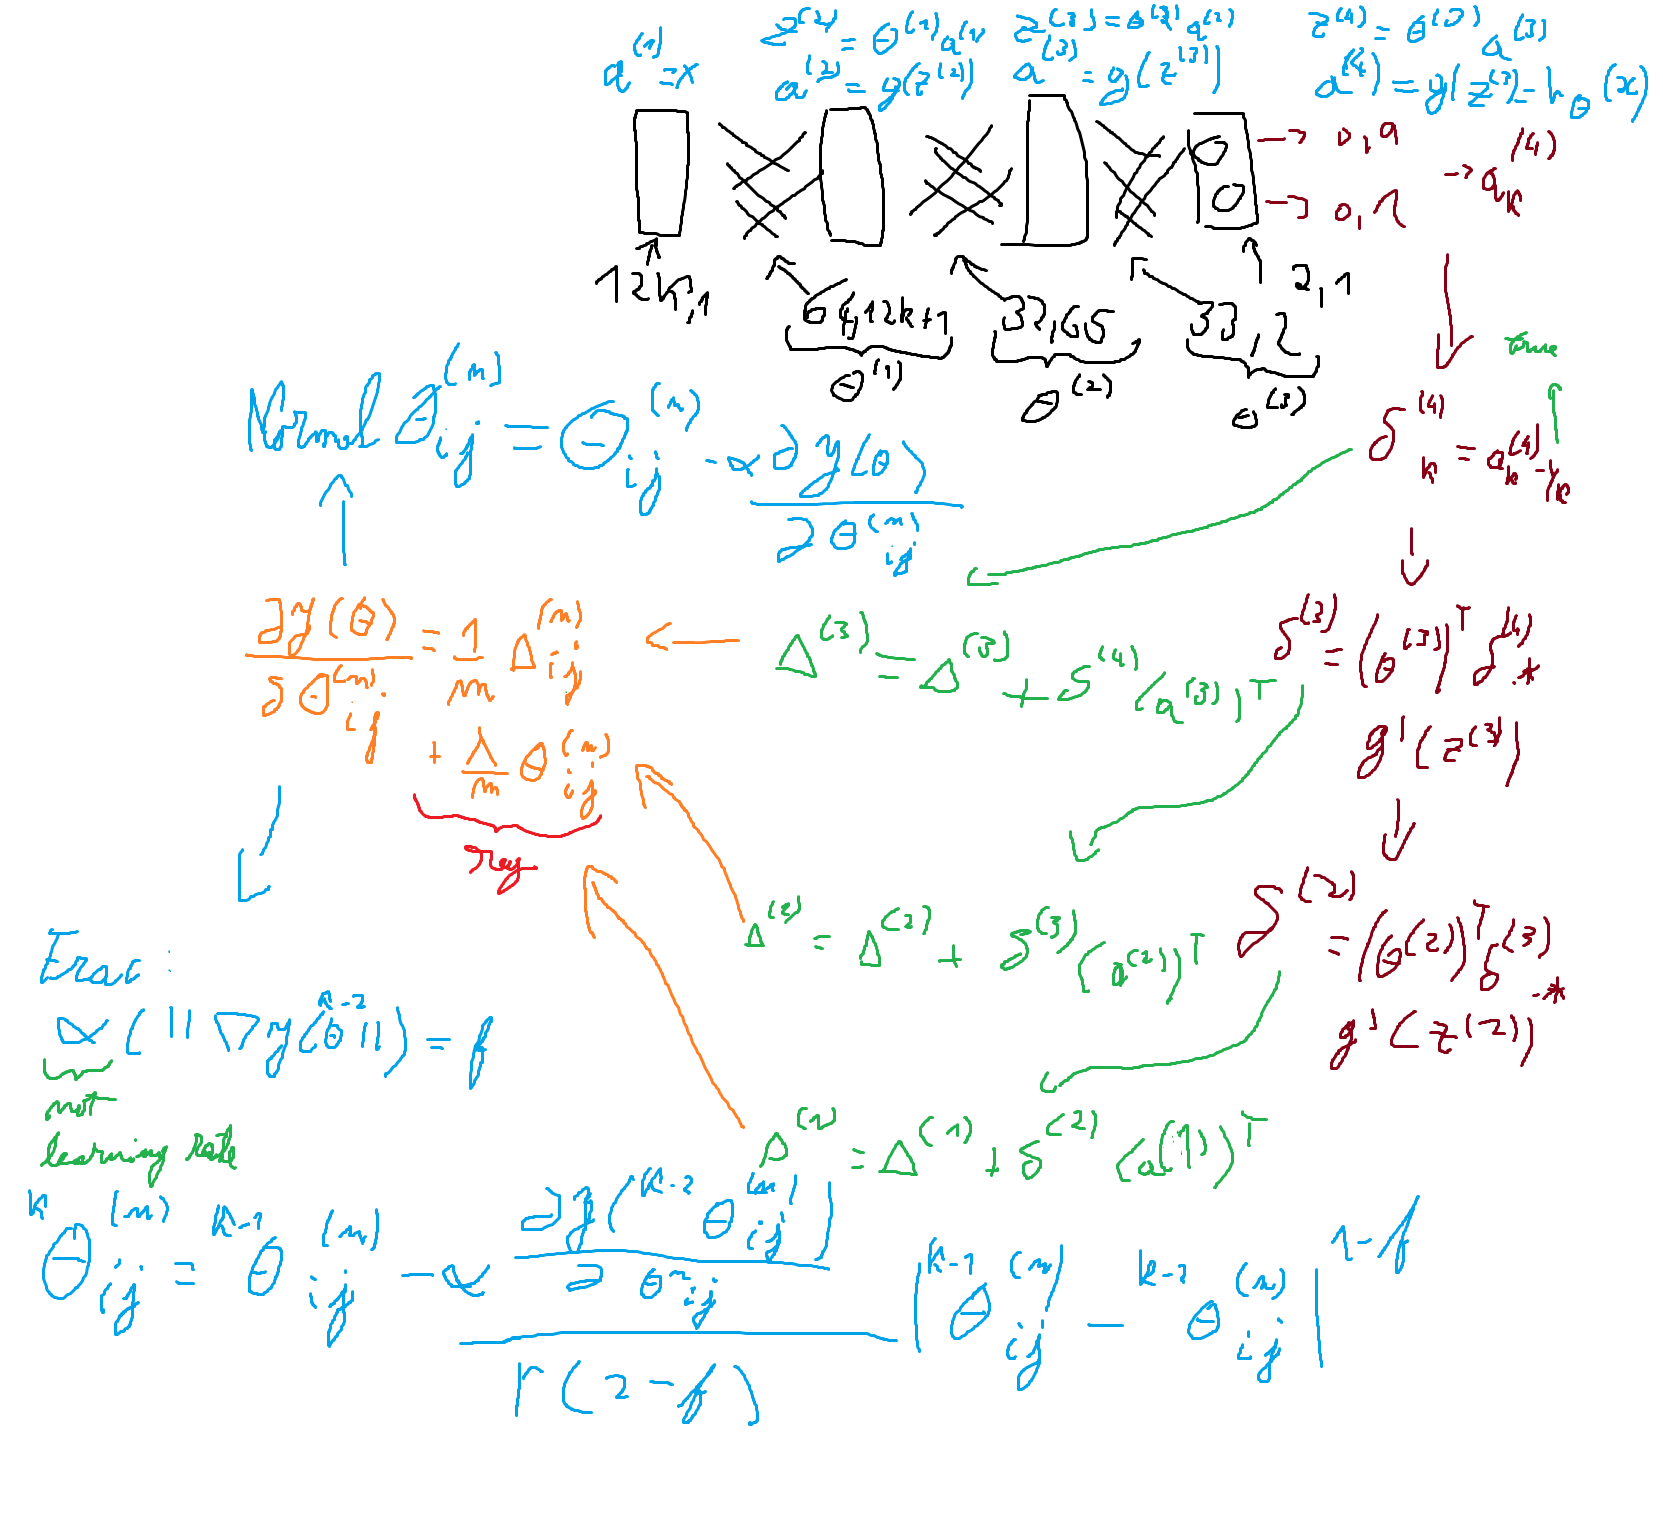 a^(1) = x
z^(2) = Θ^(1) a^(1)
a^(2) = g(z^(2))
z^(3) = Θ^(2) a^(2)
a^(3) = g(z^(3))
z^(4) = Θ^(3) a^(3)
a^(4) = g(z^(3) = h_Θ(x)
→ 0,9
→ 0,1
→ a_k^(4)
12k,1
64,12k+1
32,65
33,2
2,1
Θ^(1)
Θ^(2)
Θ^(3)
true
δ_k^(4) = a_k^(4) - y_k
Normal Θ_ij^(n) = Θ_ij^(n) - α ∂y(Θ) / ∂Θ_ij^(n)
∂y(Θ) / δΘ_ij^(n) = 1/m Δ_ij^(n)
+ λ/m Θ_ij^(n)
reg
Δ^(3) = Δ^(3) + δ^(4) (a^(3))^T
δ^(3) = (Θ^(3))^T δ^(4) .*
g'(z^(3))
Δ^(2) = Δ^(2) + δ^(3) (a^(2))^T
δ^(2) = (Θ^(2))^T δ^(3) .*
g'(z^(2))
Δ^(1) = Δ^(1) + δ^(2) (a^(1))^T
Frac:
α(||∇y(^(k-2)Θ||) = f
not
learning rate
^kΘ_ij^(n) = ^(k-1)Θ_ij^(n) - α ∂y(^(k-2)Θ_ij^(n)) / ∂Θ^n_ij / Γ(2-f) |^(k-1)Θ_ij^(n) - ^(k-2)Θ_ij^(n)|^(1-f)